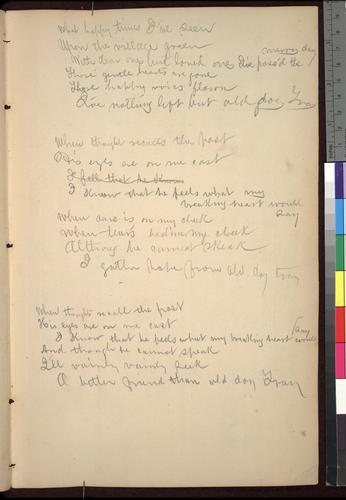 What happy times I've seen
Upon the village green
With dear ones and loved ones I've pass'd the merry day
Those gentle hearts are gone
Those happy voices flown
I've nothing left but old dog Tray
When thought recalls the past
His eyes are on me cast
I feel that he knows
I know that he feels what my breaking heart would say
When care is on my cheek
When tears bedim my cheek
Although he cannot speak
I gather hope from old dog Tray
When thoughts recall the past
His eyes are on me cast
I know that he feels what my breaking heart would say
And though he cannot speak
I'll vainly vainly seek
A better friend than old dog Tray